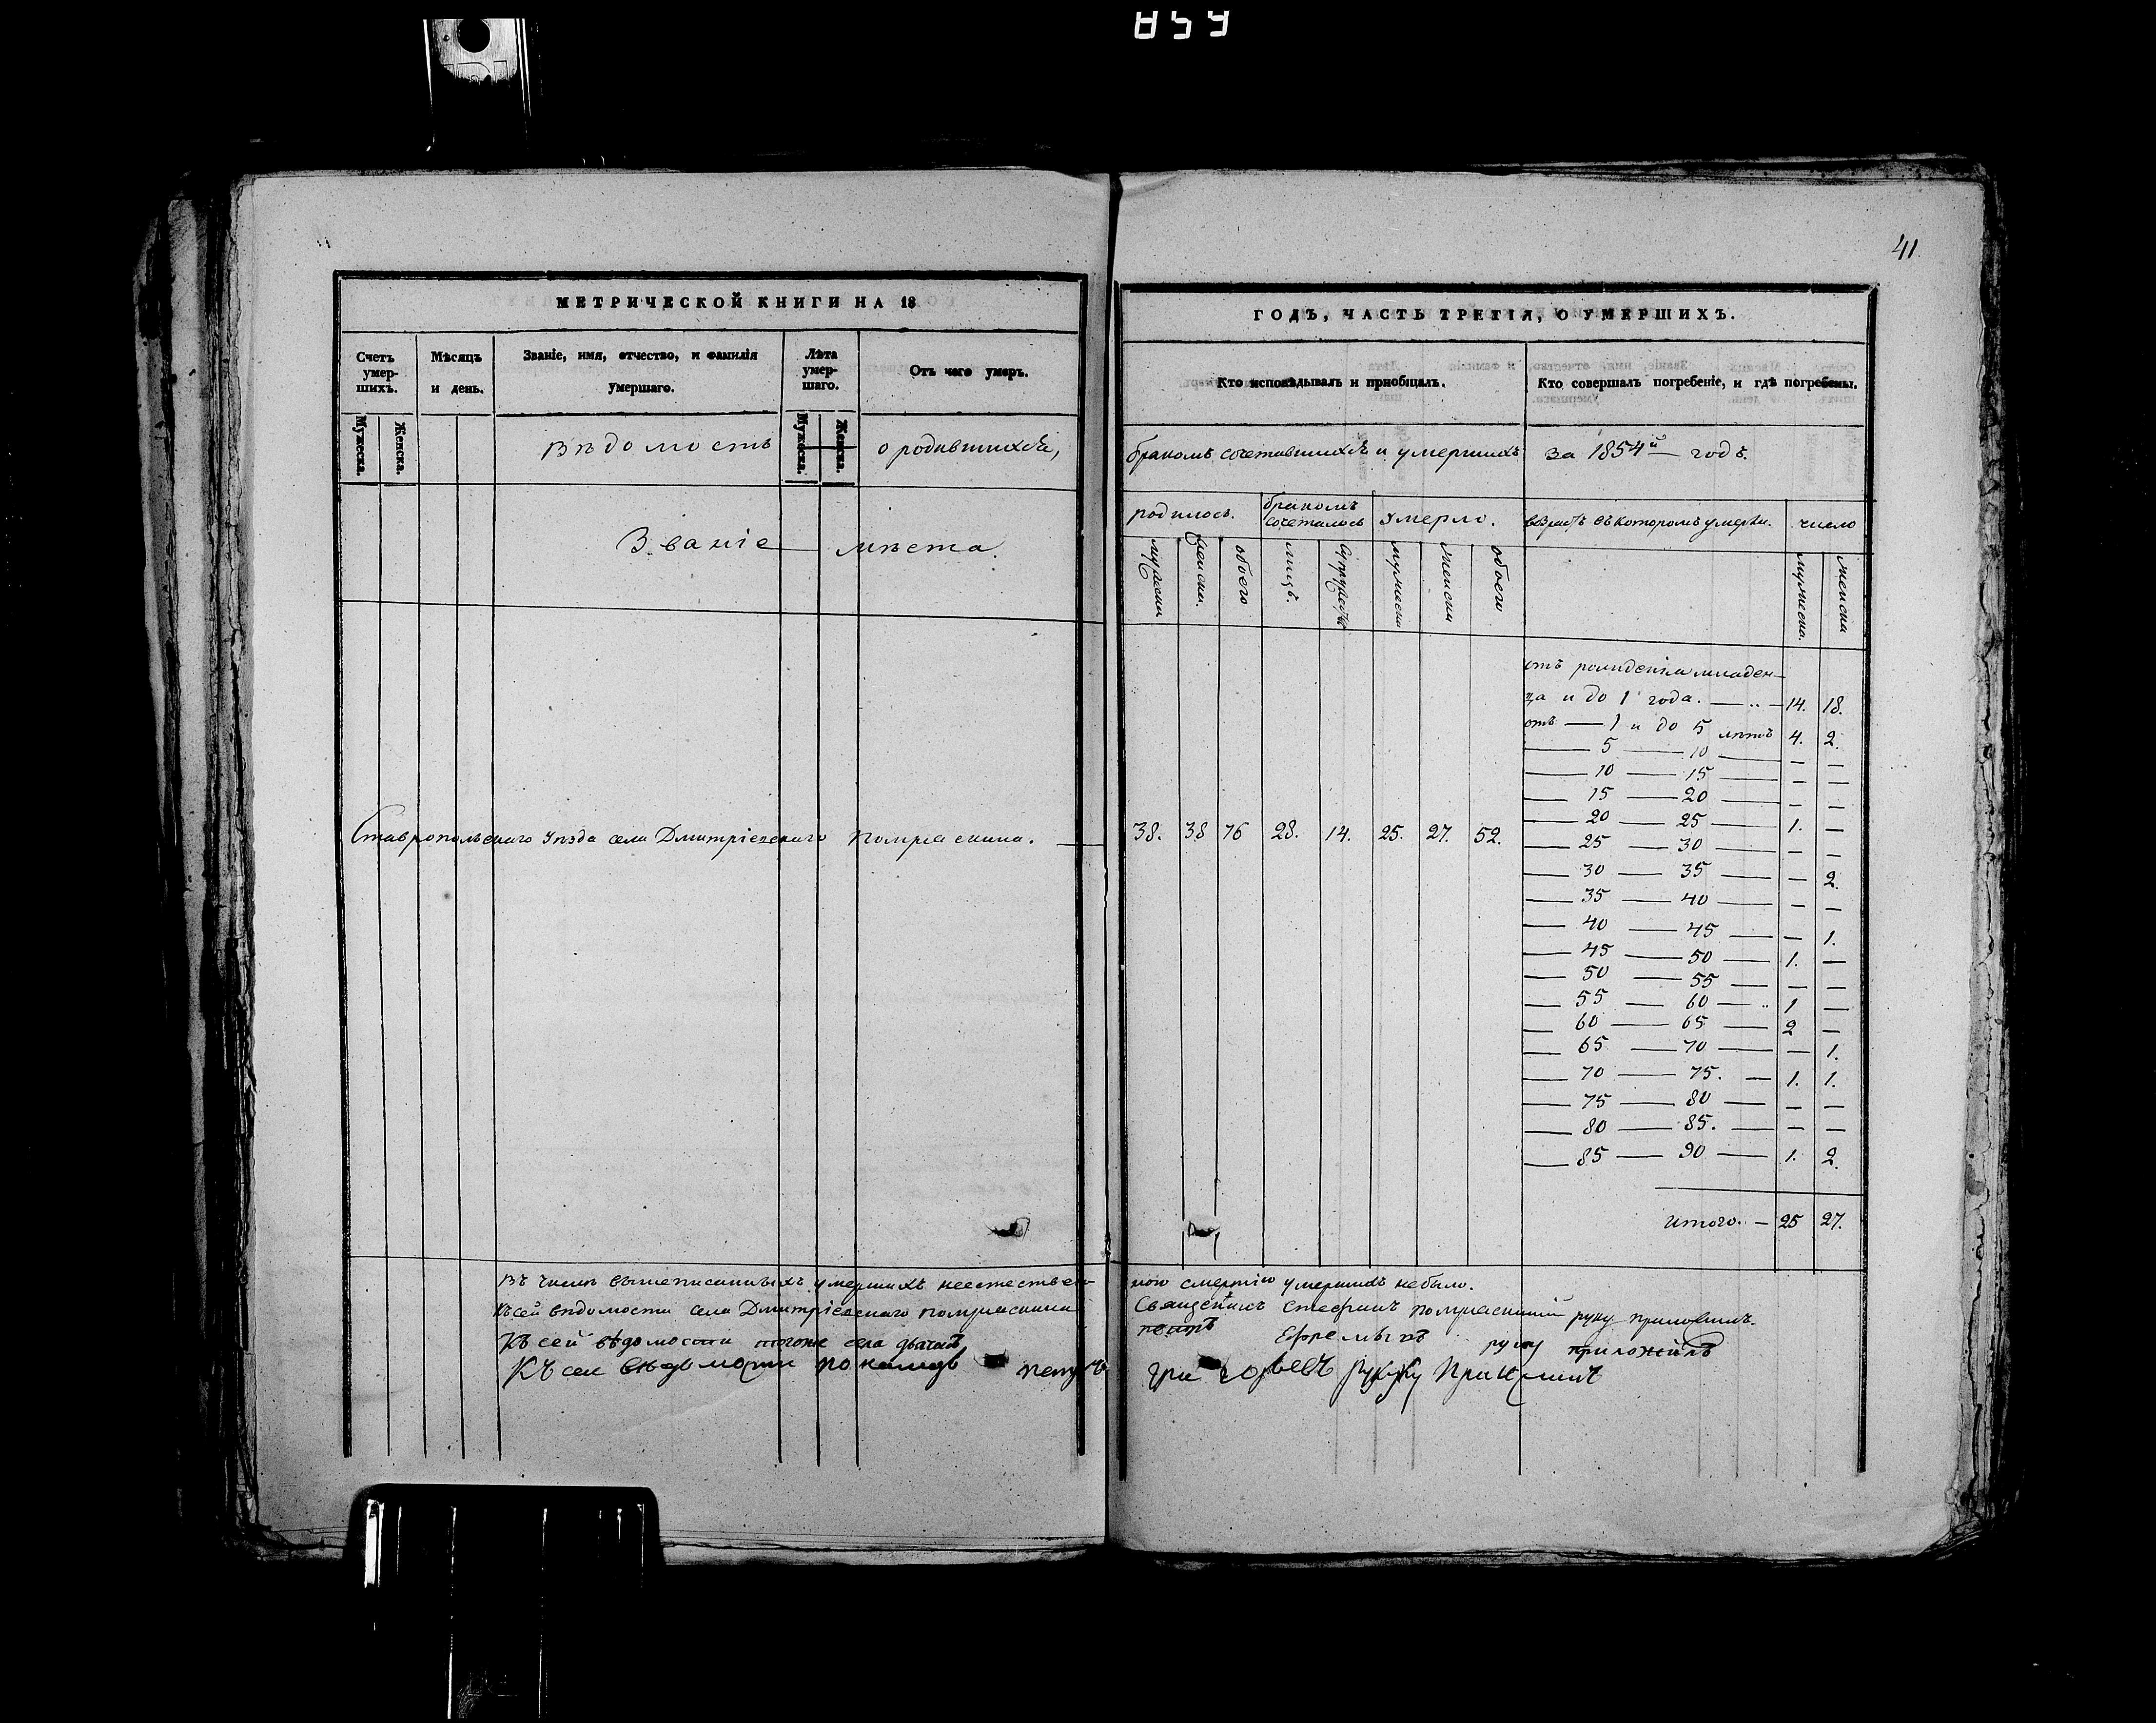 859
41
МЕТРИЧЕСКОЙ КНИГИ НА 18
ГОДЪ, ЧАСТЬ ТРЕТІЯ, О УМЕРШИХЪ.
Счетъ умер-шихъ.
Мѣсяцъ и день.
Званіе, имя, отчество, и фамилія умершаго.
Лѣта умер-шаго.
Отъ чего умеръ.
Кто исповѣдывалъ и пріобщалъ.
Кто совершалъ погребеніе, и гдѣ погребены.
Мужеска. Женска. Мужеска. Женска.
Вѣдомость о родившихся, бракомъ сочетавшихся и умершихъ за 1854й годъ.
Званіе мѣста.
родилось. бракомъ сочеталось умерло. возрастъ въ которомъ умерли. число
мужеска женска. обоего лицъ. супружествъ мужеска женска обоего мужеска. женска
отъ рожденія младен-
ца и до 1 года. — 14. 18.
отъ — 1 и до 5 лѣтъ 4. 2.
— 5 — 10 — — —
— 10 — 15 — — —
— 15 — 20 — — —
— 20 — 25 — 1. —
— 25 — 30 — — —
— 30 — 35 — — 2.
— 35 — 40 — — —
— 40 — 45 — — 1.
— 45 — 50 — 1. —
— 50 — 55 — — —
— 55 — 60 — 1 —
— 60 — 65 — 2 —
— 65 — 70 — — 1.
— 70 — 75. — 1. 1.
— 75 — 80 — — —
— 80 — 85. — — —
— 85 — 90 — 1. 2.
итого. — 25 27.
Ставропольскаго Уѣзда села Дмитріевскаго Помряскина. — 38. 38 76 28. 14. 25. 27. 52.
Въ числѣ вышеписанныхъ умершихъ неестествен-ною смертію умершихъ небыло.
Къ сей вѣдомости села Дмитріевскаго Помряскина Священникъ Стефанъ Помряскинскій руку приложилъ.
Къ сей вѣдомости тогоже села дьячекъ Петръ Ефремычъ руку приложилъ
Къ сей вѣдомости пономарь Петръ Григорьевъ руку Приложилъ